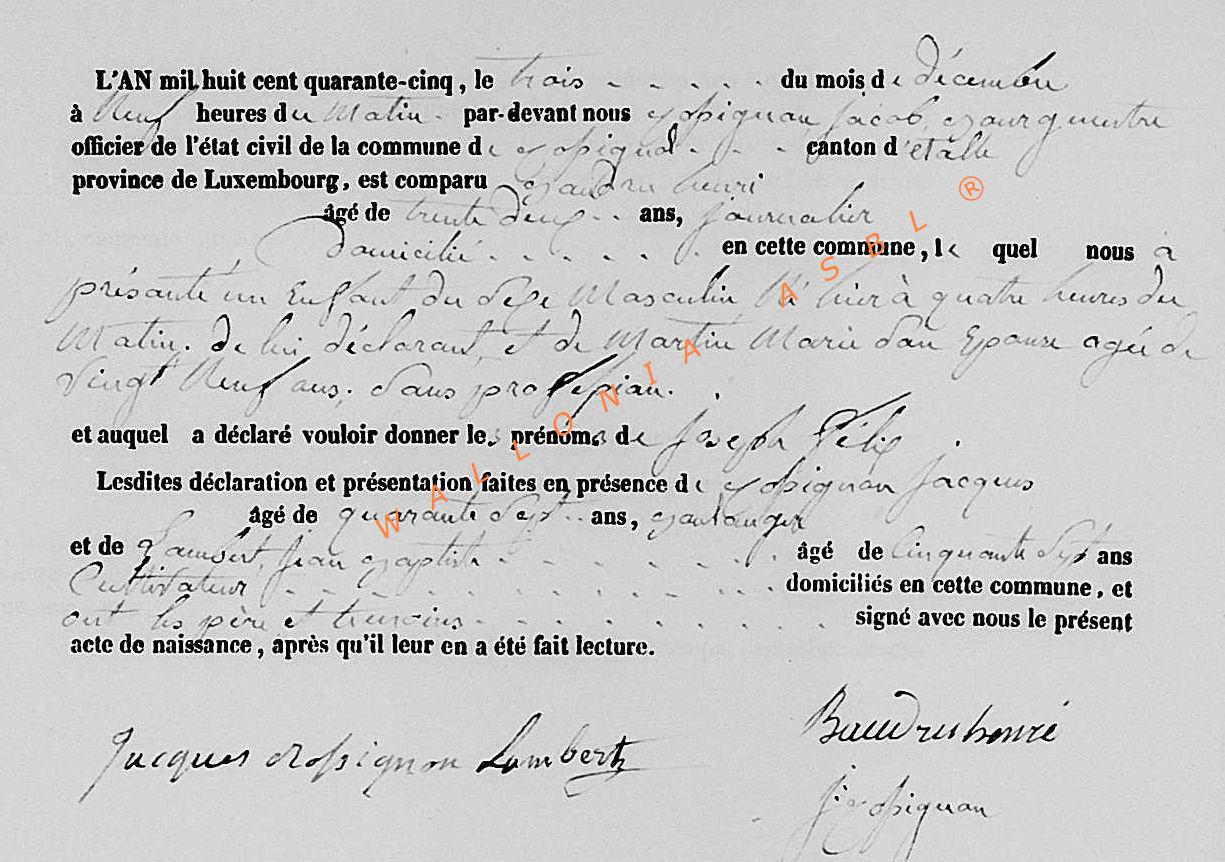 L'AN mil huit cent quarante-cinq, le trois du mois de décembre
à Neuf heures du Matin par-devant nous Rossignon Jacob, Bourguestre
officier de l'état civil de la commune de Rossignol canton d'étalle
province de Luxembourg, est comparu Baudru henri
âgé de trente deux ans, journalier
Domicilié en cette commune, le quel nous à
présanté un Enfant du Sexe Masculin Né hier à quatre heures du
Matin. de lui déclarant et de Martin Marie San Epouse agée de
vingt Neuf ans. Sans profession.
et auquel a déclaré vouloir donner les prénoms de Joseph Félix.
Lesdites déclaration et présentation faites en présence de Rossignon Jacques
âgé de quarante Sept ans, Boulanger
et de Lambert, Jean Baptiste âgé de Cinquante Sept ans
Cultivateur domiciliés en cette commune, et
ont les père et temoins signé avec nous le présent
acte de naissance, après qu'il leur en a été fait lecture.
Baudru henri
Jacques Rossignon Lambert
J Rossignon
WALLONIA ASBL ®